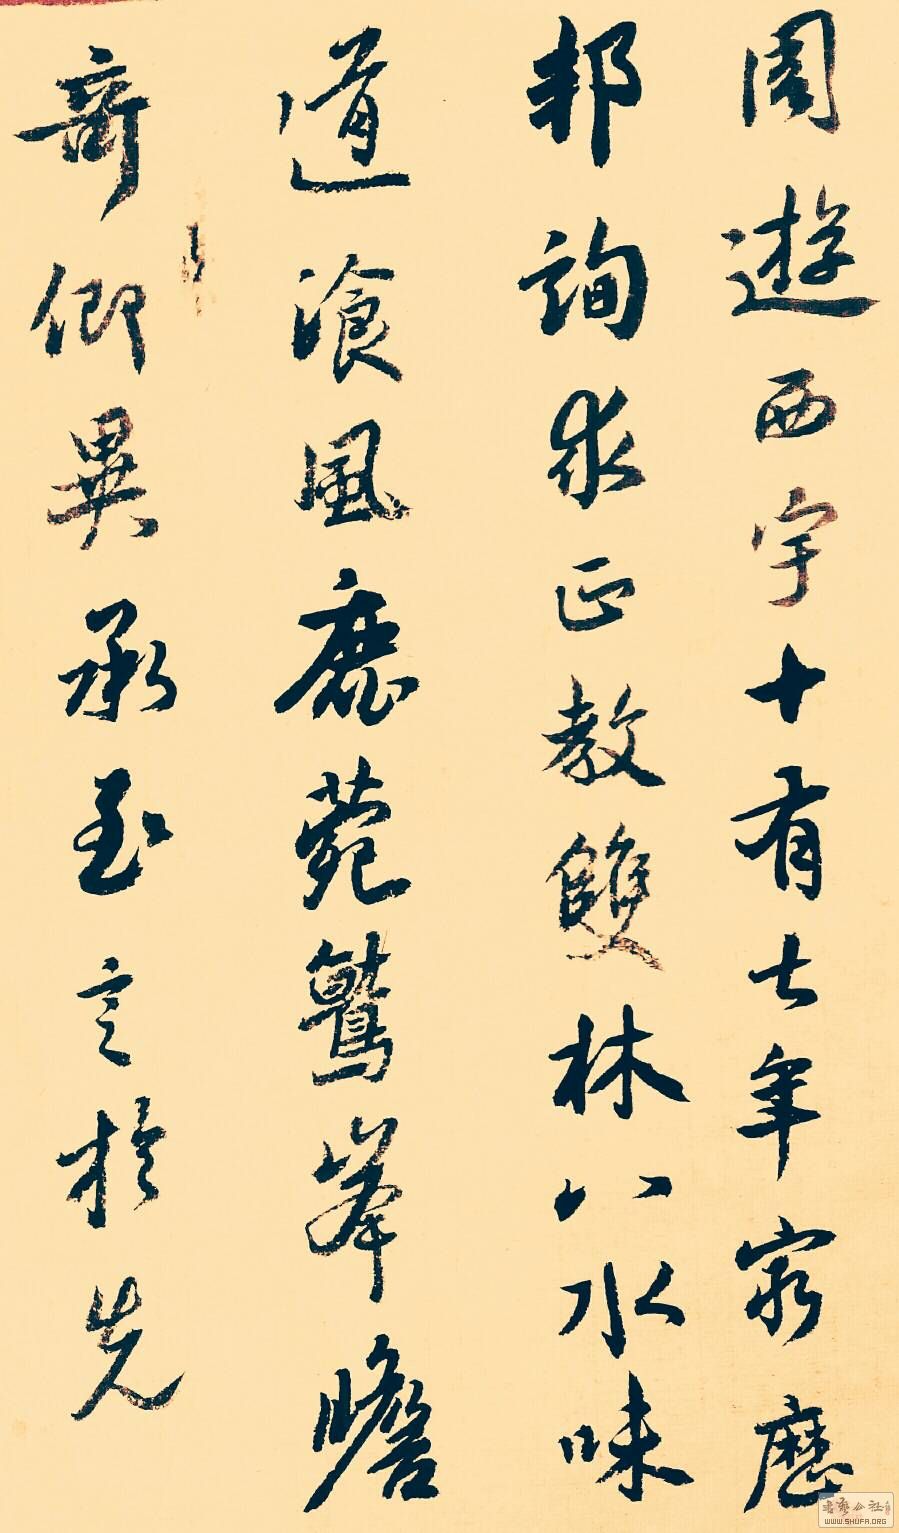 周遊西宇十有七年窮歷
邦詢求正教雙林八水味
道湌風鹿菀鷲峯瞻
奇仰異承至言於先
书艺公社
WWW.SHUFA.ORG